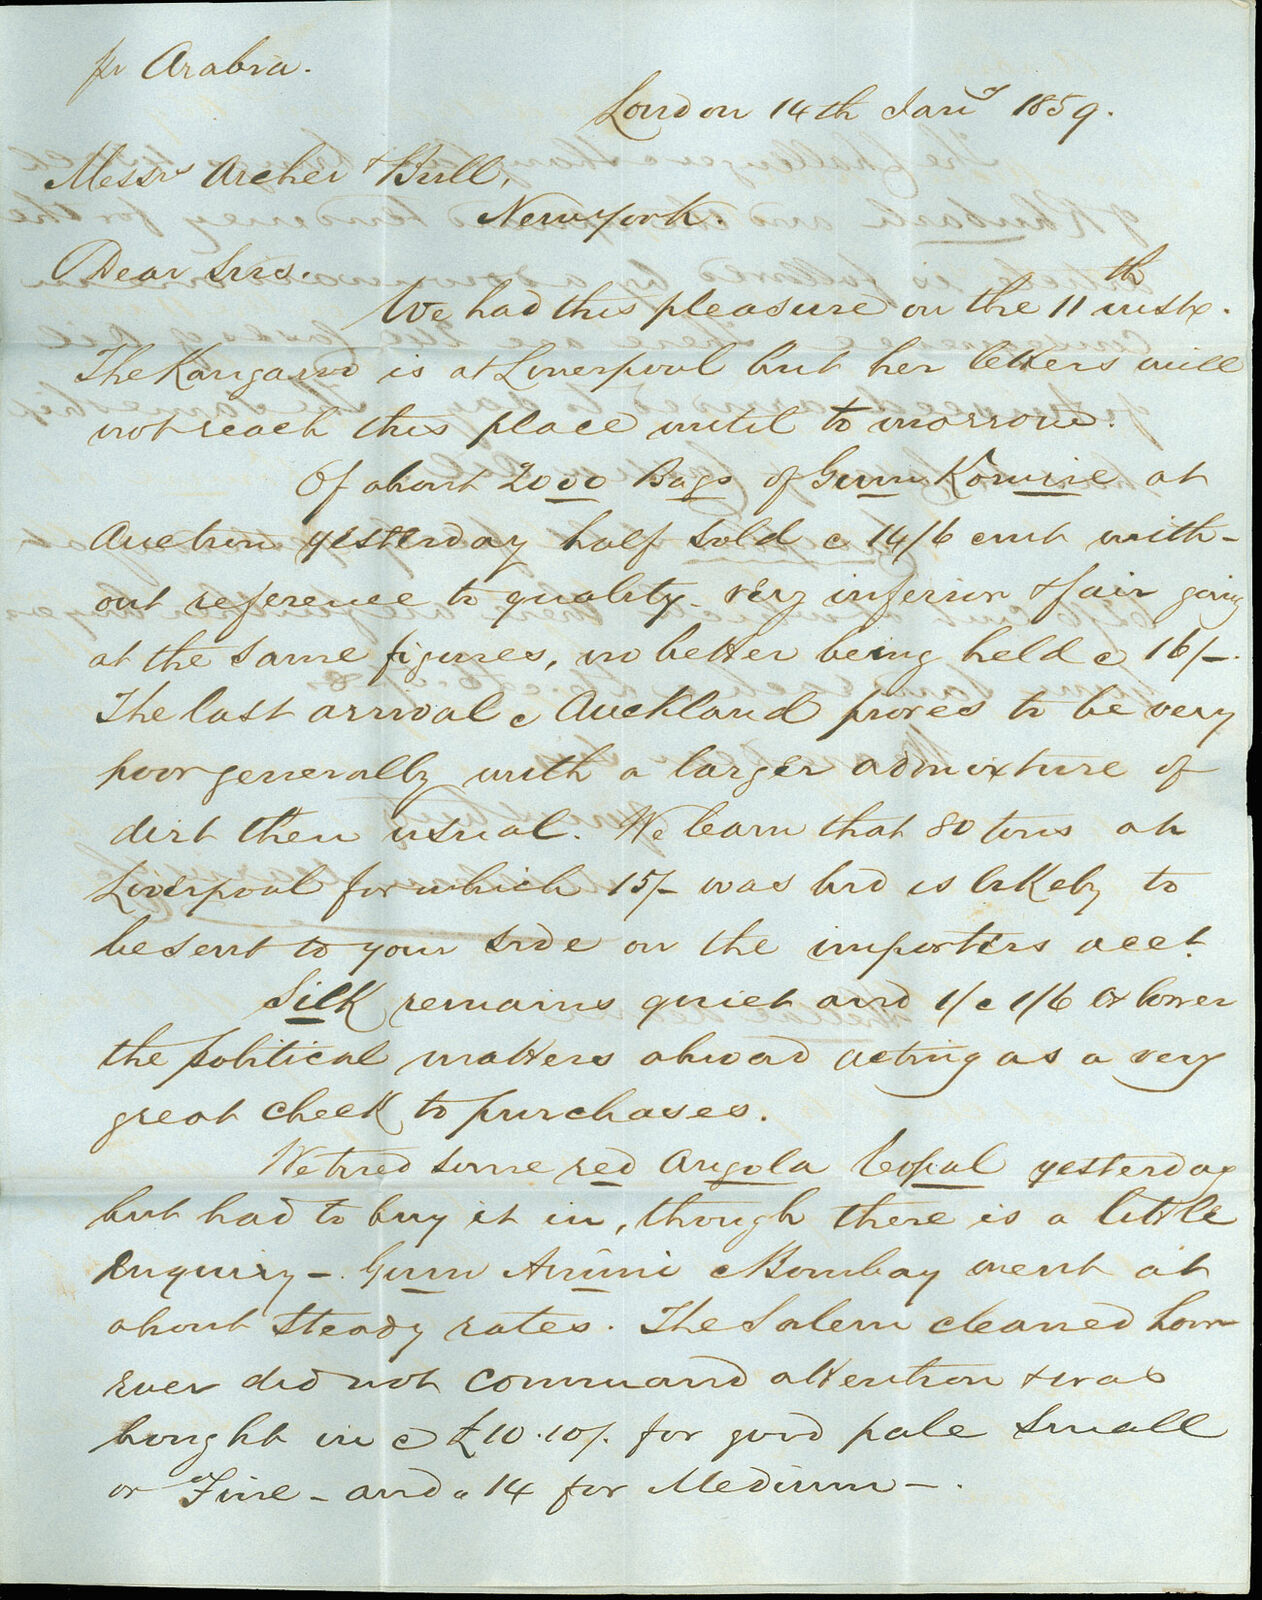 pr Arabia.
London 14th Jany 1859.
Messrs Archer & Bull,
New York.
Dear Sirs.
We had this pleasure on the 11th inst.
The Kangaroo is at Liverpool but her letters will
not reach this place until to morrow.
Of about 2000 Bags of Gum Kowrie at
Auction yesterday half sold @ 14/6 cwt with-
out reference to quality. very inferior & fair going
at the same figures, no better being held @ 16/-.
The last arrival @ Auckland proves to be very
poor generally with a larger admixture of
dirt then usual. We learn that 80 tons at
Liverpool for which 15/- was bid is likely to
be sent to your side on the importers acct.
Silk remains quiet and 1/ @ 1/6 lower
the political matters abroad acting as a very
great check to purchases.
We tried some red Angola Copal yesterday
but had to buy it in, though there is a little
enquiry - Gum Animi Bombay went at
about steady rates. The Salem cleaned how
ever did not command attention & was
bought in @ £10.10/. for good pale small
or Fine - and @ 14 for Medium -.